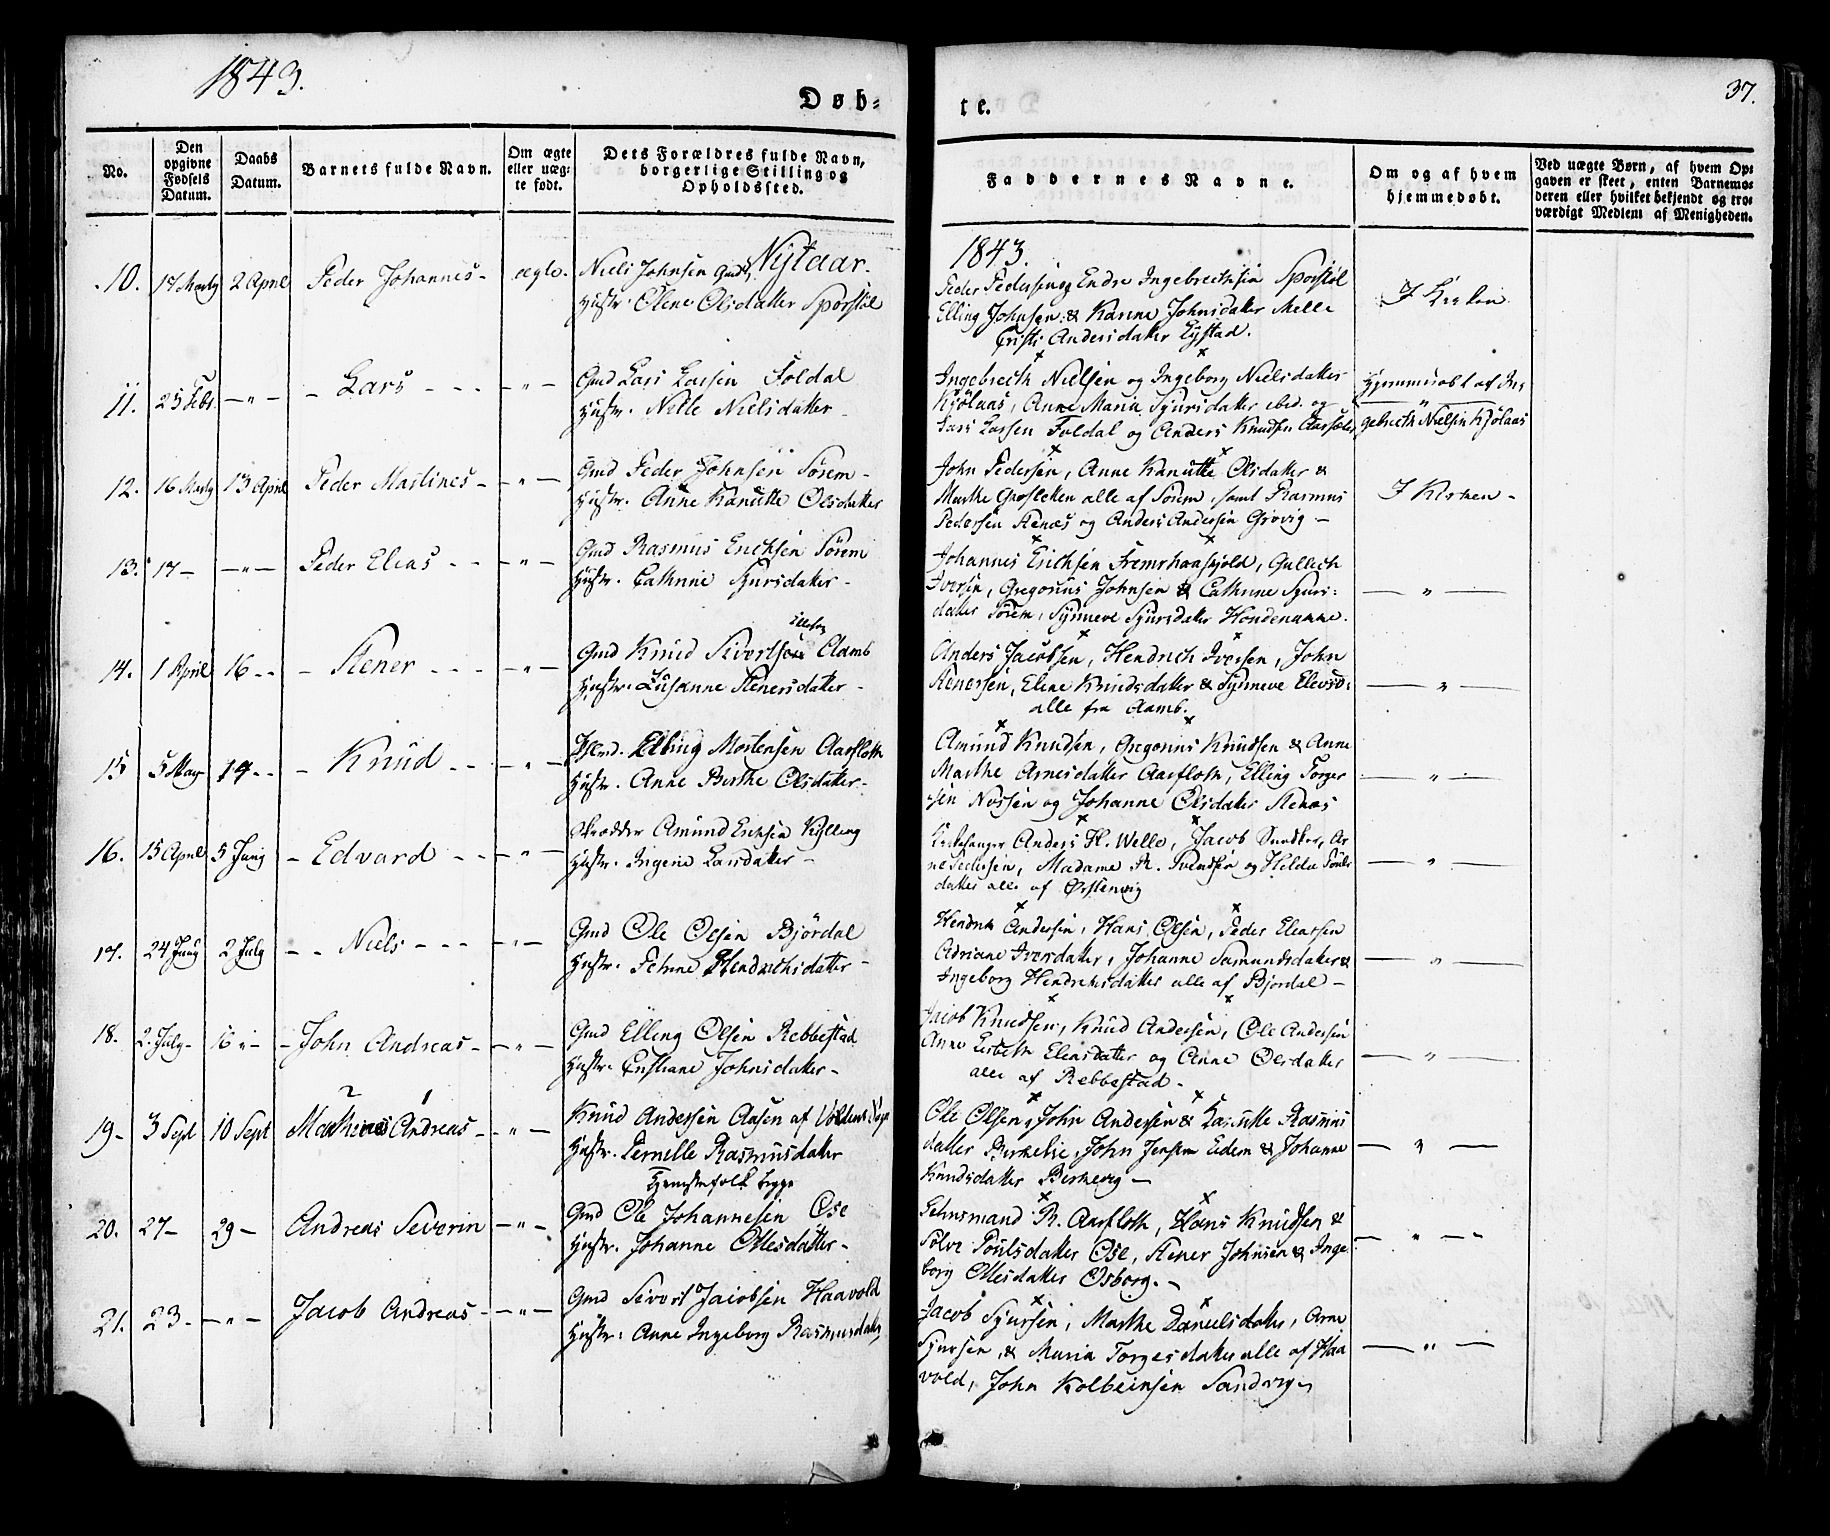 1843.
Døb-
te.
37.
No.
Den
opgivne
Fødsels
Datum.
Daabs
Datum.
Barnets fulde Navn.
Om ægte
eller uæg-
te født.
Dets Forældres fulde Navn,
borgerlige Stilling og
Opholdssted.
Faddernes Navne.
Om og af hvem
hjemmedøbt.
Ved uægte Børn, af hvem Op-
gaven er skeet, enten Barnemo-
deren eller hvilket bekjendt og tro-
værdigt Medlem af Menigheden.
Nÿtaar.
1843.
10. 17 Marty 2 April Peder Johannes - ægte.
Niels Johnsen Gmd
Hustr. Olene Olsdatter Sporstöl
Peder Pedersen og Endre Ingebrecthsen Sporstöl
Elling Johnsen & Hanne Johnsdatter Melle
Cristi Andersdatter Eystad.
I Kirken
11. 25 Febr. - " - - Lars - - - " -
Gmd Lars Larsen Foldal
Hustr. Nille Nielsdatter -
Ingebrecth Nielsen og Ingeborg Nielsdatter
Kjölaas, Anne Maria Sjursdatter ibid. og
Lars Larsen Foldal og Anders Knudsen Aarsæter
Hjemmedøbt af In,
gebrecth Nielsen Kjölaas
12. 16 Marty 13 April Peder Martines - - " -
Gmd Peder Johnsen Sörem -
Hustr. Anne Kanutte Olsdatter
John Pedersen, Anne Kanutte Olsdatter &
Marthe alle af Sörem, samt Rasmus
Pedersen Stenæs og Anders Andersen Grøvig -
I Kirken -
13. 17 - - " - Peder Elias - - - " -
Gmd Rasmus Ericksen Sörem
Hustr. Cathrine Sjursdatter -
Johannes Ericksen Fremrhaaskjold, Gullich
Iversen, Gregorius Johnsen & Cathrine Sjurs-
datter Sörem, Synneve Sjursdatter
- " -
14. 1 April 16 - - - Stener - - - - " -
Gmd Knud Sivertsen Aamb
Hustr. Susanne Stenersdatter -
Anders Jacobsen, Hendrich Iversen, John
Stenersen, Elene Knudsdatter & Synneve
alle fra Aamb.
- " -
15 5 May 14 - - - Knud - - - " -
Elling Mortensen Aarfloth
Hustr. Anne Berthe Olsdatter -
Amund Knudsen, Gregorius Knudsen & Anne
Marthe Arnesdatter Aarfloth, Elling Torger
sen Nossen og Johanne Olsdatter Stenæs
- " -
16. 15 April 5 Juny - Edvard - - - " -
Skredder Amund Ericksen Kylling
Hustr. Ingerie Larsdatter -
Kirkesanger Anders H. Welle, Jacob Ar
ne Pedersen, Madame R. Svendsen og Helda Pouls
datter alle af Ørstenvig
- " -
17. 24 Juny 2 July - - Niels - - - - " -
Gmd Ole Olsen Bjørdal
Hustr. Hendrichsdatter -
Hendrik Andersen, Hans Olsen, Peder Eleassen
Adriane Iversdatter, Johanne Samundsdatter &
Ingeborg Hendrichsdatter alle af Bjordal -
- " -
18. 2. July - 16 " - - John Andreas - - " -
Gmd Elling Olsen Rebbestad
Hustr. Cristiane Johnsdatter -
Jacob Knudsen, Knud Andersen, Ole Andersen
Anne Lisbeth Eliasdatter og Anne Olsdatter
alle af Rebbestad -
- " -
19 - 3 Sept 10 Sept Mathias Andreas - - " -
Knud Andersen Aasen af Voldens
Hustr. Pernille Rasmusdatter
begge
Ole Olsen, John Andersen & Rasmus
datter Birkevig, John Jensen Eidem & Johanne
Knudsdatter Berkevig -
- " -
20. 27 - 29 - Andreas Severin - " -
Gmd Ole Johannesen Ose
Hustr. Johanne Ollesdatter -
Lehnsmand R. Aarfloth, Hans Knudsen &
Sölvi Poulsdatter Ose, Stener Johnsen & Inge
borg Ollesdatter Osborg. -
- " -
21. 23 - - " - Jacob Andreas - - " -
Gmd Sivert Jacobsen Haavold
Hustr. Anne Ingeborg Rasmusdatter
Jacob Sjursen, Marthe Danielsdatter, Arne
Sjursen, & Maria Torgesdatter alle af Haa
vold, John Kolbeinsen Sandvig -
- " -